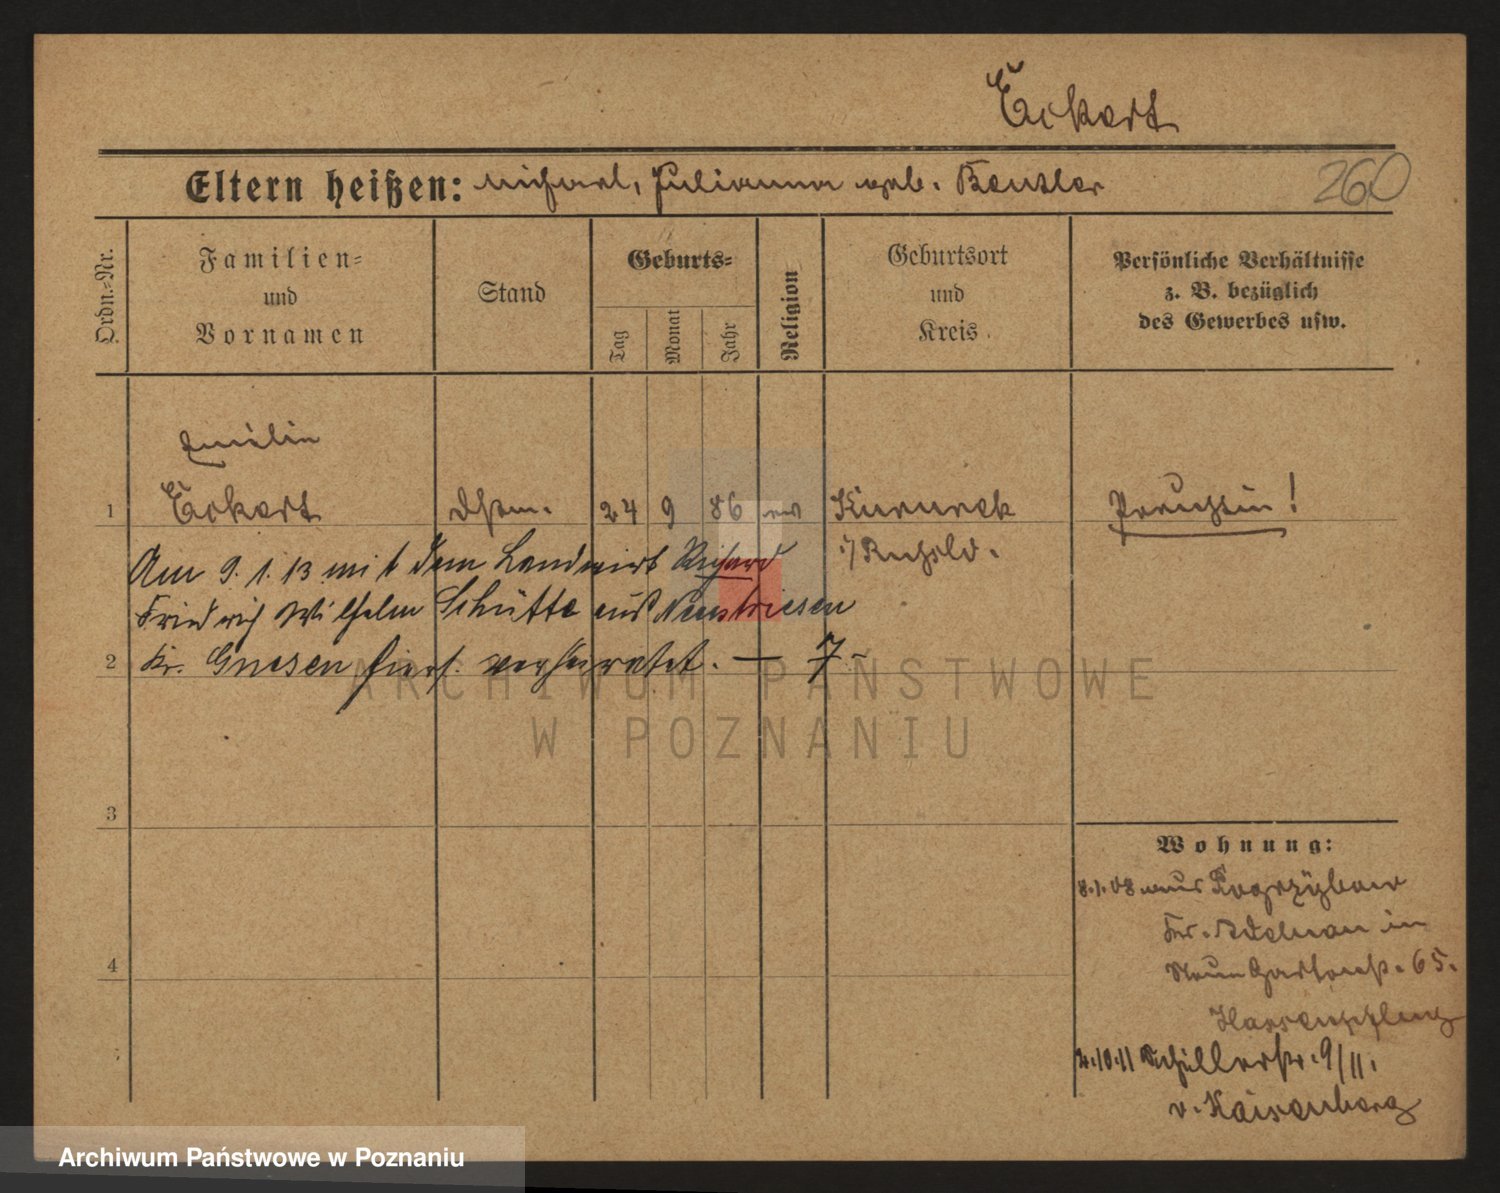 Eckert
Eltern heißen: Michael, Julianna geb. Bensler
260
Ordn.-Nr.
Familien-
und
Vornamen
Stand
Geburts-
Tag
Monat
Jahr
Religion
Geburtsort
und
Kreis.
Persönliche Verhältnisse
z. B. bezüglich
des Gewerbes usw.
Emilie
1 Eckert 24 9 86 ev Preußin!
i/ Rußld.
Am 9. 1. 13 mit dem Landwirt Richard
Friedrich Wilhelm Schütte aus
2 Kr. Gnesen hiers. verheiratet. — 7. -
3
4
Wohnung:
8.1.08 aus
Kr. in
65.
2.10.11 Schillerstr. 9/II.
v. Kaisenberg
ARCHIWUM PAŃSTWOWE
W POZNANIU
Archiwum Państwowe w Poznaniu